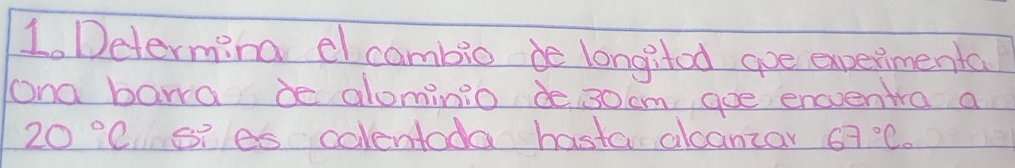 1. Determina el cambio de longitud que experimenta
una barra de aluminio de 30cm que encuentra a
20 °C si es calentada hasta alcanzar 67 °C.